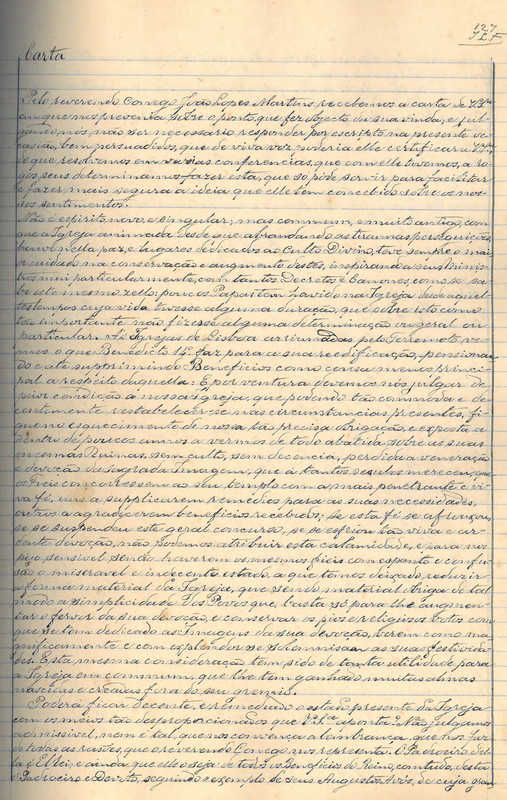 127
J.L.F
Carta
Pelo reverendo Conego João Lopes Martins, recebemos a carta de V.
em que nos prevenia sobre o ponto, que fez objecto da sua vinda, e jul-
gando nós, não ser necessario responder por escripto na presente oc-
casião, bem persuadidos, que de viva voz poderia elle certificar V.
do que resolvemos em varias conferencias, que com elle tivemos, a ro-
gos seus determinamos fazer esta, que só póde servir para facilitar
e fazer mais segura a ideia que elle tem concebido sobre os nos-
sos sentimentos.
Não é espirito novo, e singular; mas commum, e muito antigo, com
que a Igreja animada desde que abrandando as tirannas perseguições,
houve nella paz, e lugares dedicados ao Culto Divino, teve sempre o mai-
or cuidado na conservação e augmento destes, inspirando a seus Minis-
tros mui particularmente, com tantos Decretos e Canones, como se sa-
be este mesmo zello: poucos Papas tem havido na Igreja desde aquel-
les tempos cuja vida tivesse alguma duração, que sobre isto como
tão importante não fizesse alguma determinação ou geral ou
particular. As Igrejas de Lisboa arruinadas pelo Terremoto ve-
mos o que Benedicto 14 faz para a sua redificação, pensionan-
do e até supprimindo Beneficios como cousa menos princi-
pal a respeito daquella: E por ventura devemos nós julgar de
peior condição a nossa Igreja, que podendo tão commoda e de-
centemente restabelecer-se nas circumstancias presentes, fi-
que no esquecimento de nossa tão precisa obrigação, e exposta a
dentro de poucos annos a vermos de todo abatida sobre as suas
mesmas Ruinas, sem culto, sem decencia, perdida a veneração
e devoção da Sagrada Imagem, que á tantos seculos mereceu, que
os Fieis concorressem ao seu templo com a mais penetrante e vi-
va fé, uns a supplicarem remedios para as suas necessidades,
outros a agradecerem beneficios recebidos; Se esta fé se afrouxou,
se se suspendeu este geral concurso, se se esfriou tão viva e ar-
dente devoção, não podemos atribuir esta calamidade, e para nós
pejo sensivel senão haverem os mesmos fieis com espanto e confu-
são o miseravel e indecente estado, a que temos deixado, reduzir
a forma material da Igreja, que sendo material obriga de tal
modo a simplicidade dos Povos que, basta só para lhe augmen-
tar o fervor da sua devoção, e conservar os pios e religiosos votos com
que se tem dedicado as Imagens da sua devoção, verem como ma-
gnificamente e com explendor se solemnisam as suas festivida-
des. Esta mesma consideração tem sido de tanta utilidade para
a Igreja em commum, que lhe tem ganhado muitas almas
nascidas e creadas fora do seu gremio.
Poderá ficar decente, e remediado o estado presente da Igreja
com os meios tão desproporcionados que V. aponta? Não julgamos
admissivel, nem é tal, que nos convença a lembrança, que hoz faz
a todas as rasões, que o reverendo Conego nos representa. O Padroeiro del-
la é ElRei, e ainda que elle o seja de todos os Beneficios do Reino, comtudo, desta
Padroeiro e Devoto, seguindo o exemplo de seus Augustos Avós, de cuja gran-